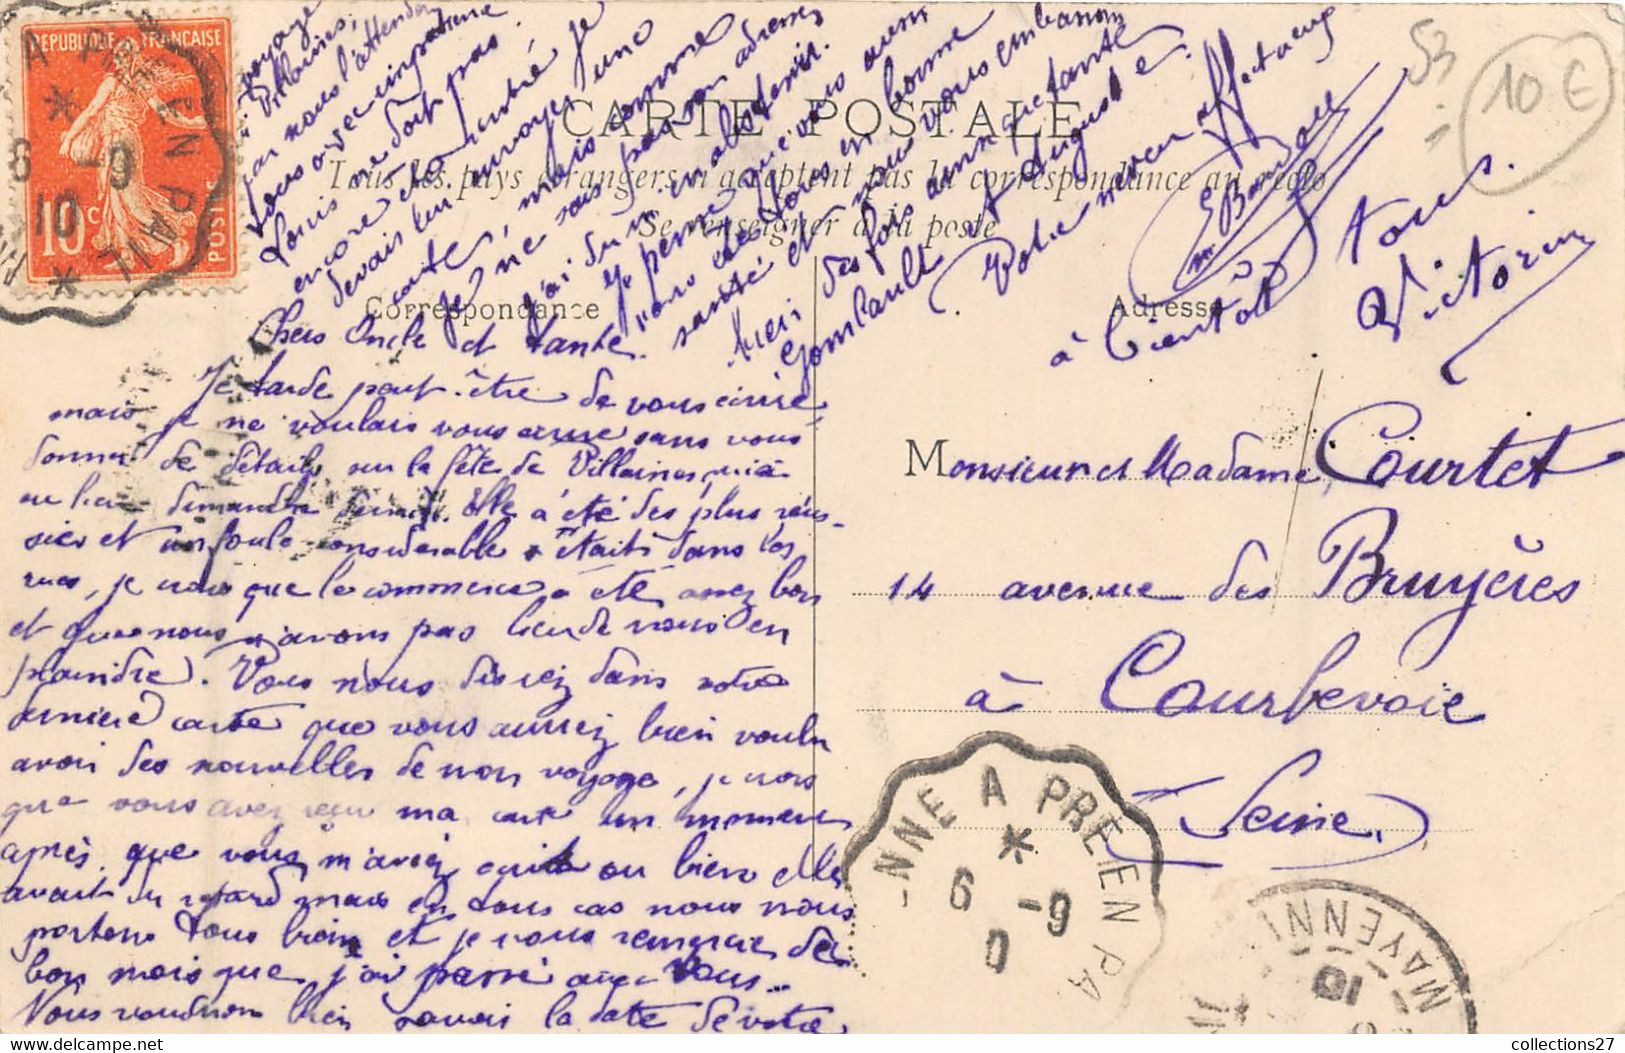 REPUBLIQUE FRANÇAISE
10c
POSTE
CARTE POSTALE
Tous les pays étrangers n'acceptent pas la correspondance au recto
Se renseigner à la poste
Correspondance
Adresse
53
10 €
Chers Oncle et tante.
Je tarde peut-être de vous écrire
mais je ne voulais vous écrire sans vous
donner de détails sur la fête de Villaines qui a
eu lieu dimanche dernier. Elle a été des plus réus-
sies et une foule considérable était dans les
rues, je crois que le commerce a été assez bon
et que nous n'avons pas lieu de nous en
plaindre. Vous nous disiez dans votre
dernière carte que vous auriez bien voulu
avoir des nouvelles de mon voyage, je crois
que vous avez reçu ma carte un moment
après que vous m'aviez écrit ou bien elle
avait du retard mais en tous cas nous nous
portons tous bien et je vous remercie du
bon mois que j'ai passé avec vous..
Nous voudrions bien savoir la date de votre
voyage
à Villaines,
car nous l'attendons
tous avec impatience
Louis ne doit pas
encore être rentré je
devais leur envoyer une
carte, mais comme
je ne sais pas son adresse
j'ai du m'abstenir.
Je pense que vous avez
vous des tous en bonne
santé et nous vous embrassons
bien des fois ainsi que tante
Gombault et Auguste.
Votre neveu affectueux
à bientôt
tous.
Victorin
Monsieur et Madame Courtet
14 avenue des Bruyères
à Courbevoie
Seine
NNE A PRE EN PA
6 -9
10
MAYENN
10
collections27